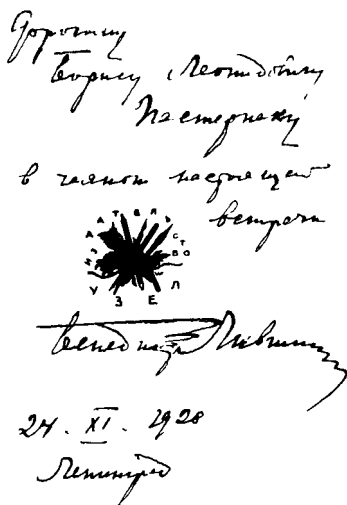 Дорогому
Борису Леонидовичу
Пастернаку
в чаянии настоящей
встречи
ИЗДАТЕЛЬСТВО
УЗЕЛ
Бенедикт Лившиц
24. XI. 1928
Ленинград